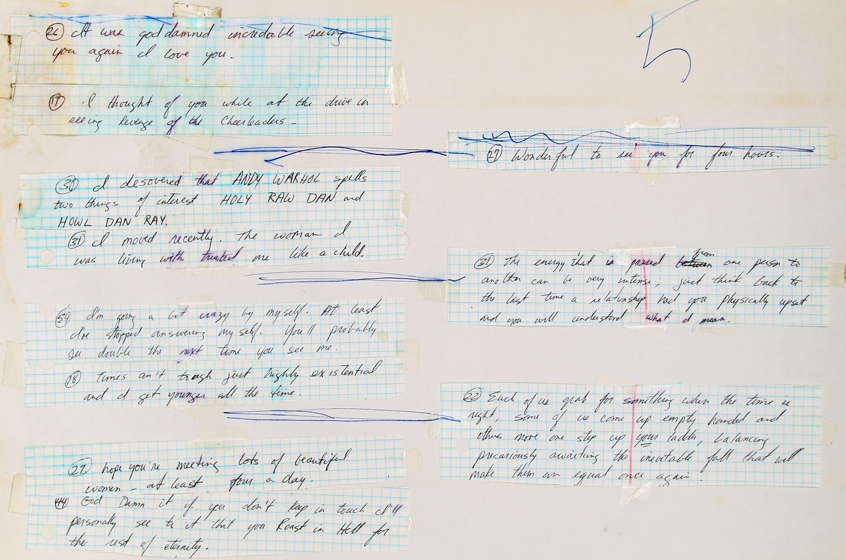 5
(26) It was god damned incredable seeing
you again I love you.
(19) I thought of you while at the drive in
seeing Revenge of the Cheerleaders -
(27) Wonderful to see you for four hours.
I desovered that ANDY WARHOL spells
two things of interest HOLY RAW DAN and
HOWL DAN RAY.
(31) I moved recently. The woman I
was living with treated me like a child.
The energy that is passed between from one person to
another can be very intense, just think back to
the last time a relationship had you physically upset
and you will understand what I mean.
I'm going a bit crazy by myself. At least
I've stopped answering myself. You'll probably
see double the next time you see me
(18) Times ain't tough just highly existential
and I get younger all the time.
Each of us grab for something when the time is
right, some of us come up empty handed and
others move one step up your ladder, balancing
precariously awaiting the inevitable fall that will
make them an equal once again.
(27) hope you're meeting lots of beautiful
women - at least four a day.
(44) God Damn it if you don't keep in touch I'll
personally see to it that you Roast in Hell for
the rest of eternity.